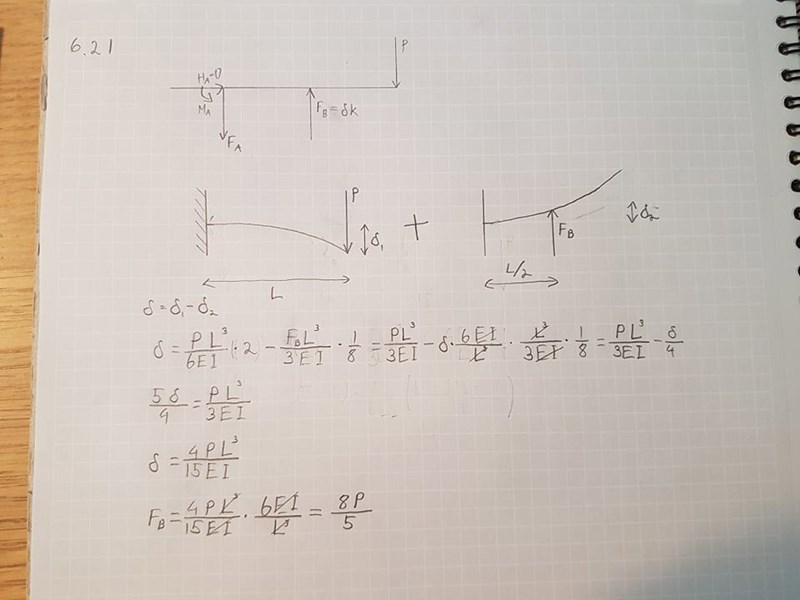 6.21
P
HA=0
MA
FB=δk
FA
P
δ₁
+
FB
δ₂
L
L/2
δ=δ₁-δ₂
δ=PL³/6EI(·2)-FBL³/3EI·1/8=PL³/3EI-δ·6EI/L³·L³/3EI·1/8=PL³/3EI-δ/4
5δ/4=PL³/3EI
δ=4PL³/15EI
FB=4PL³/15EI·6EI/L³=8P/5